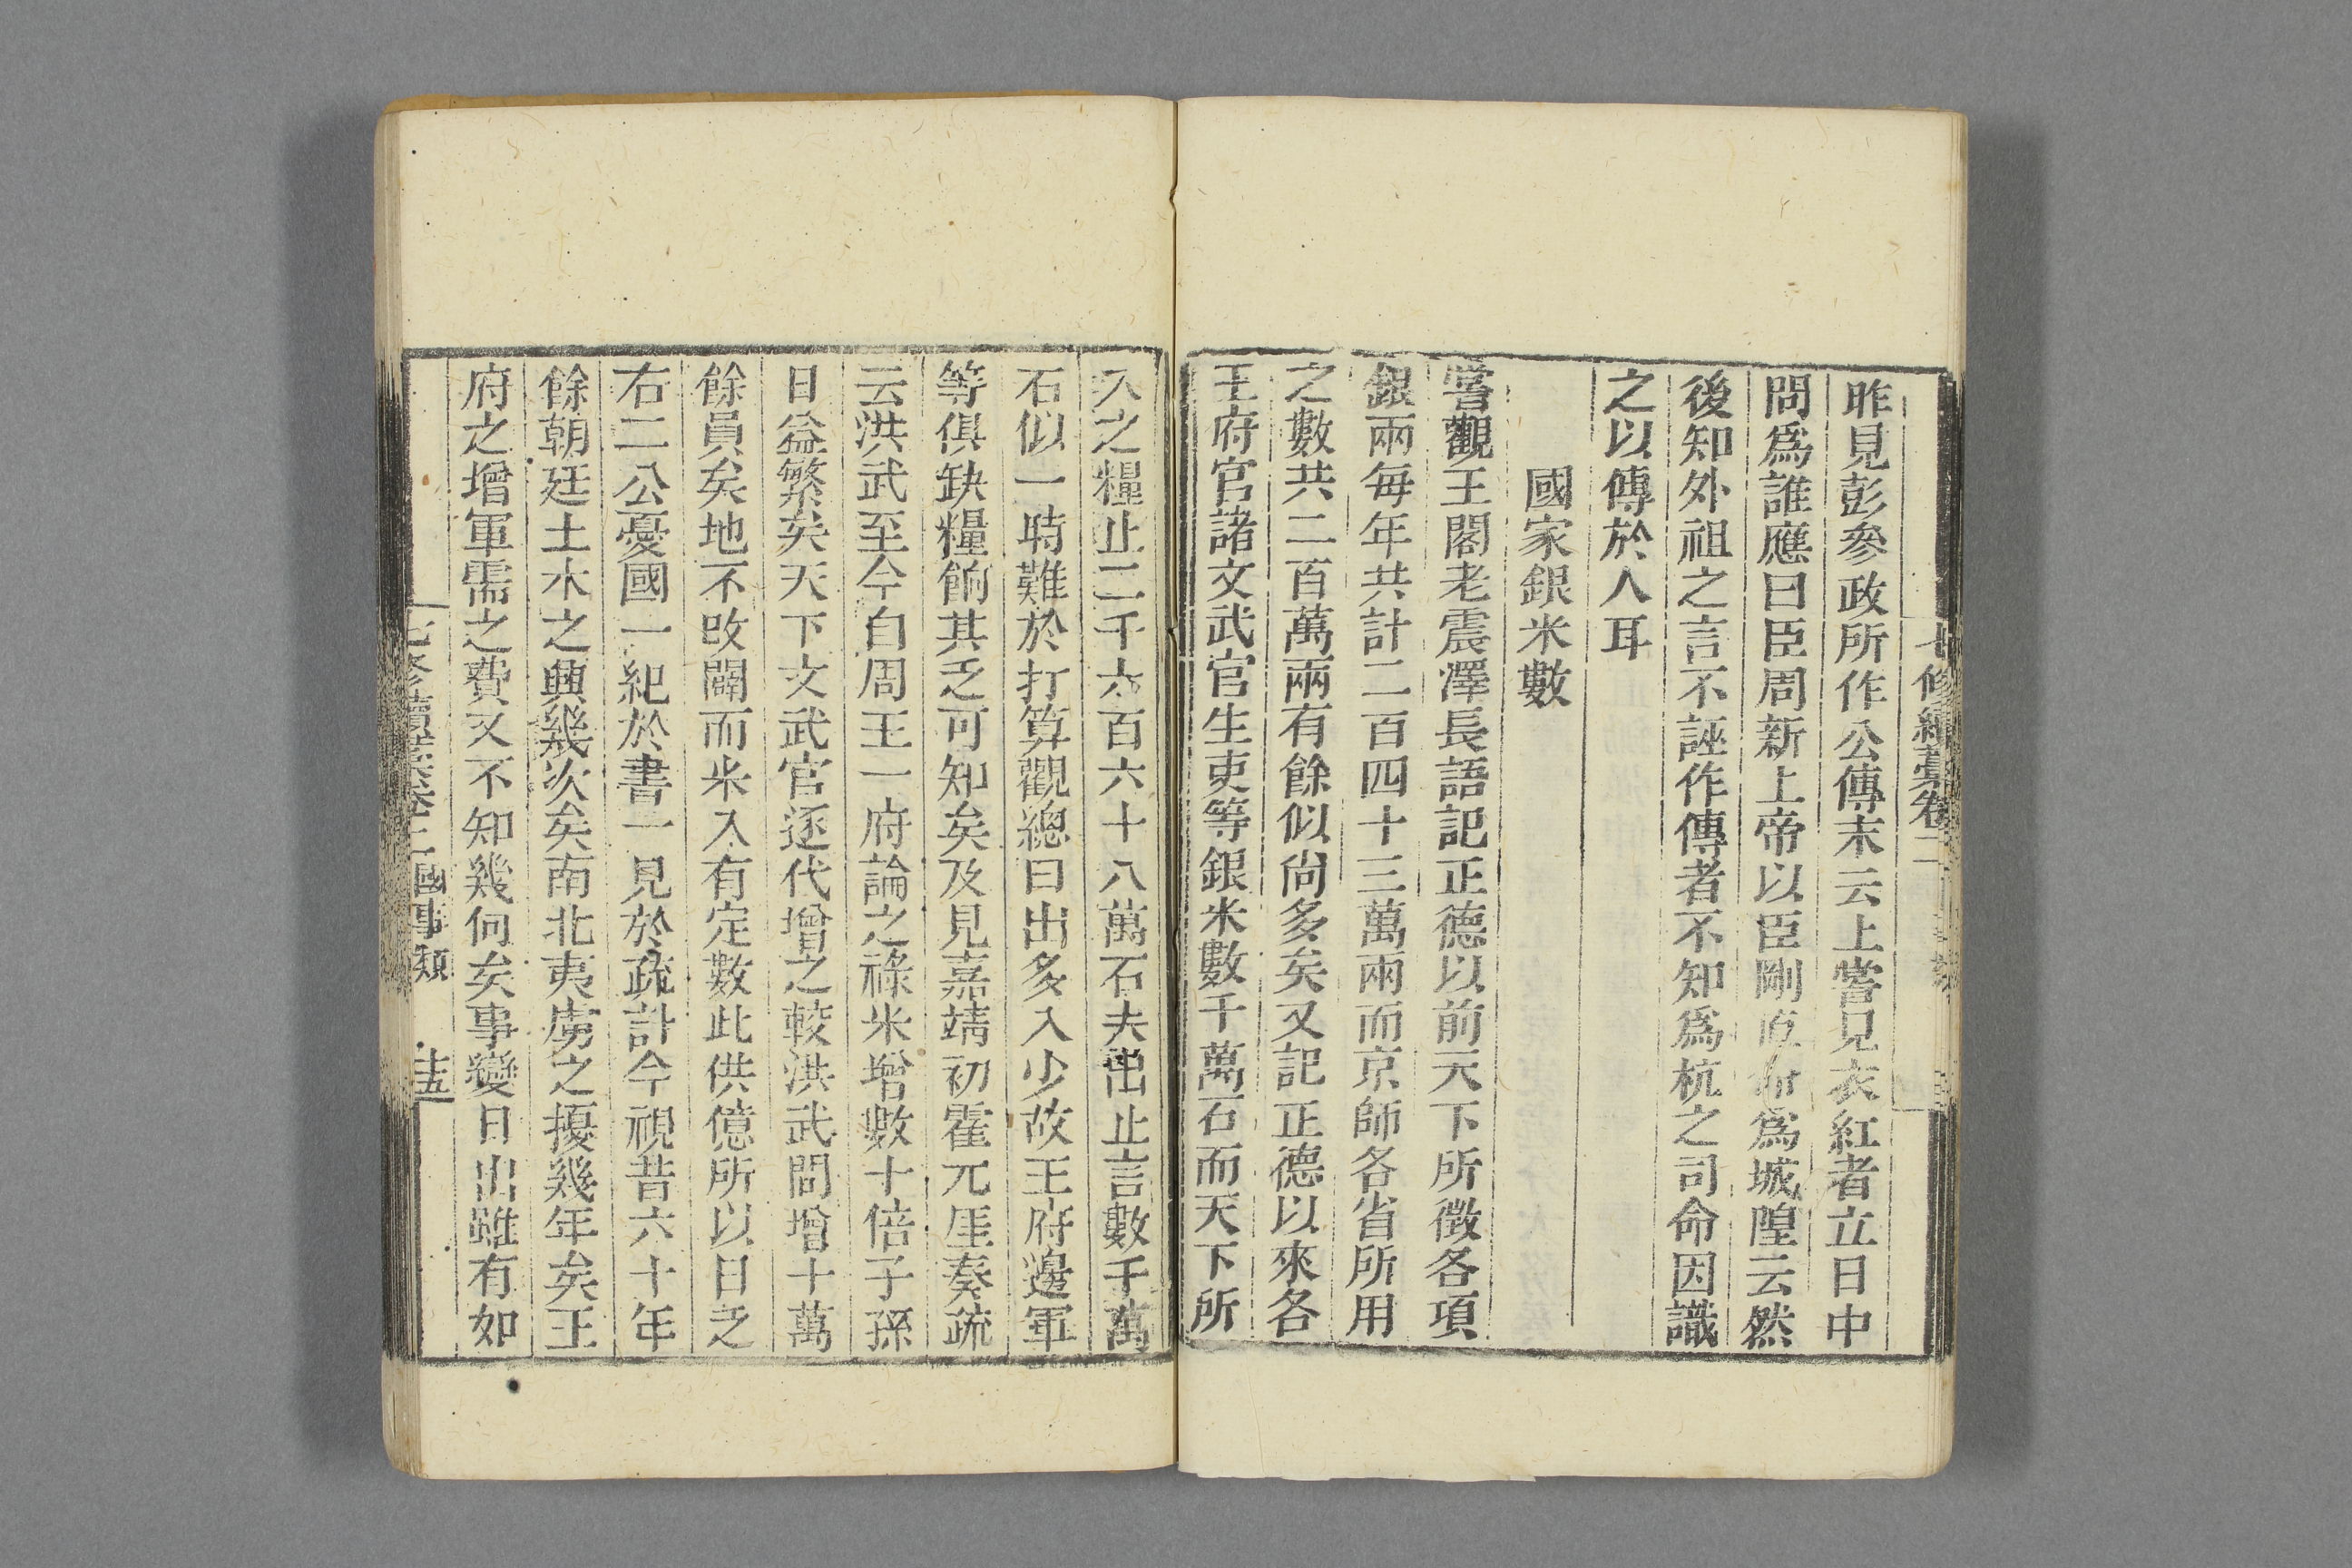 七修續藁卷二
昨見彭參政所作公傳末云上嘗見衣紅者立日中
問爲誰應曰臣周新上帝以臣剛直命爲城隍云然
後知外祖之言不誣作傳者不知爲杭之司命因識
之以傳於人耳
國家銀米數
嘗觀王閣老震澤長語記正德以前天下所徴各項
銀兩每年共計二百四十三萬兩而京師各省所用
之數共二百萬兩有餘似尙多矣又記正德以來各
王府官諸文武官生吏等銀米數千萬石而天下所
入之糧止二千六百六十八萬石夫出止言數千萬
石似一時難於打算觀總曰出多入少故王府邊軍
等俱缺糧餉其乏可知矣及見嘉靖初霍兀厓奏疏
云洪武至今自周王一府論之祿米增數十倍子孫
日益繁矣天下文武官逐代增之較洪武間增十萬
餘員矣地不改闢而米入有定數此供億所以日乏
右二公憂國一紀於書一見於疏計今視昔六十年
餘朝廷土木之興幾次矣南北夷虜之擾幾年矣王
府之增軍需之費又不知幾何矣事變日出雖有如
七修續藁卷二 國事類 十五